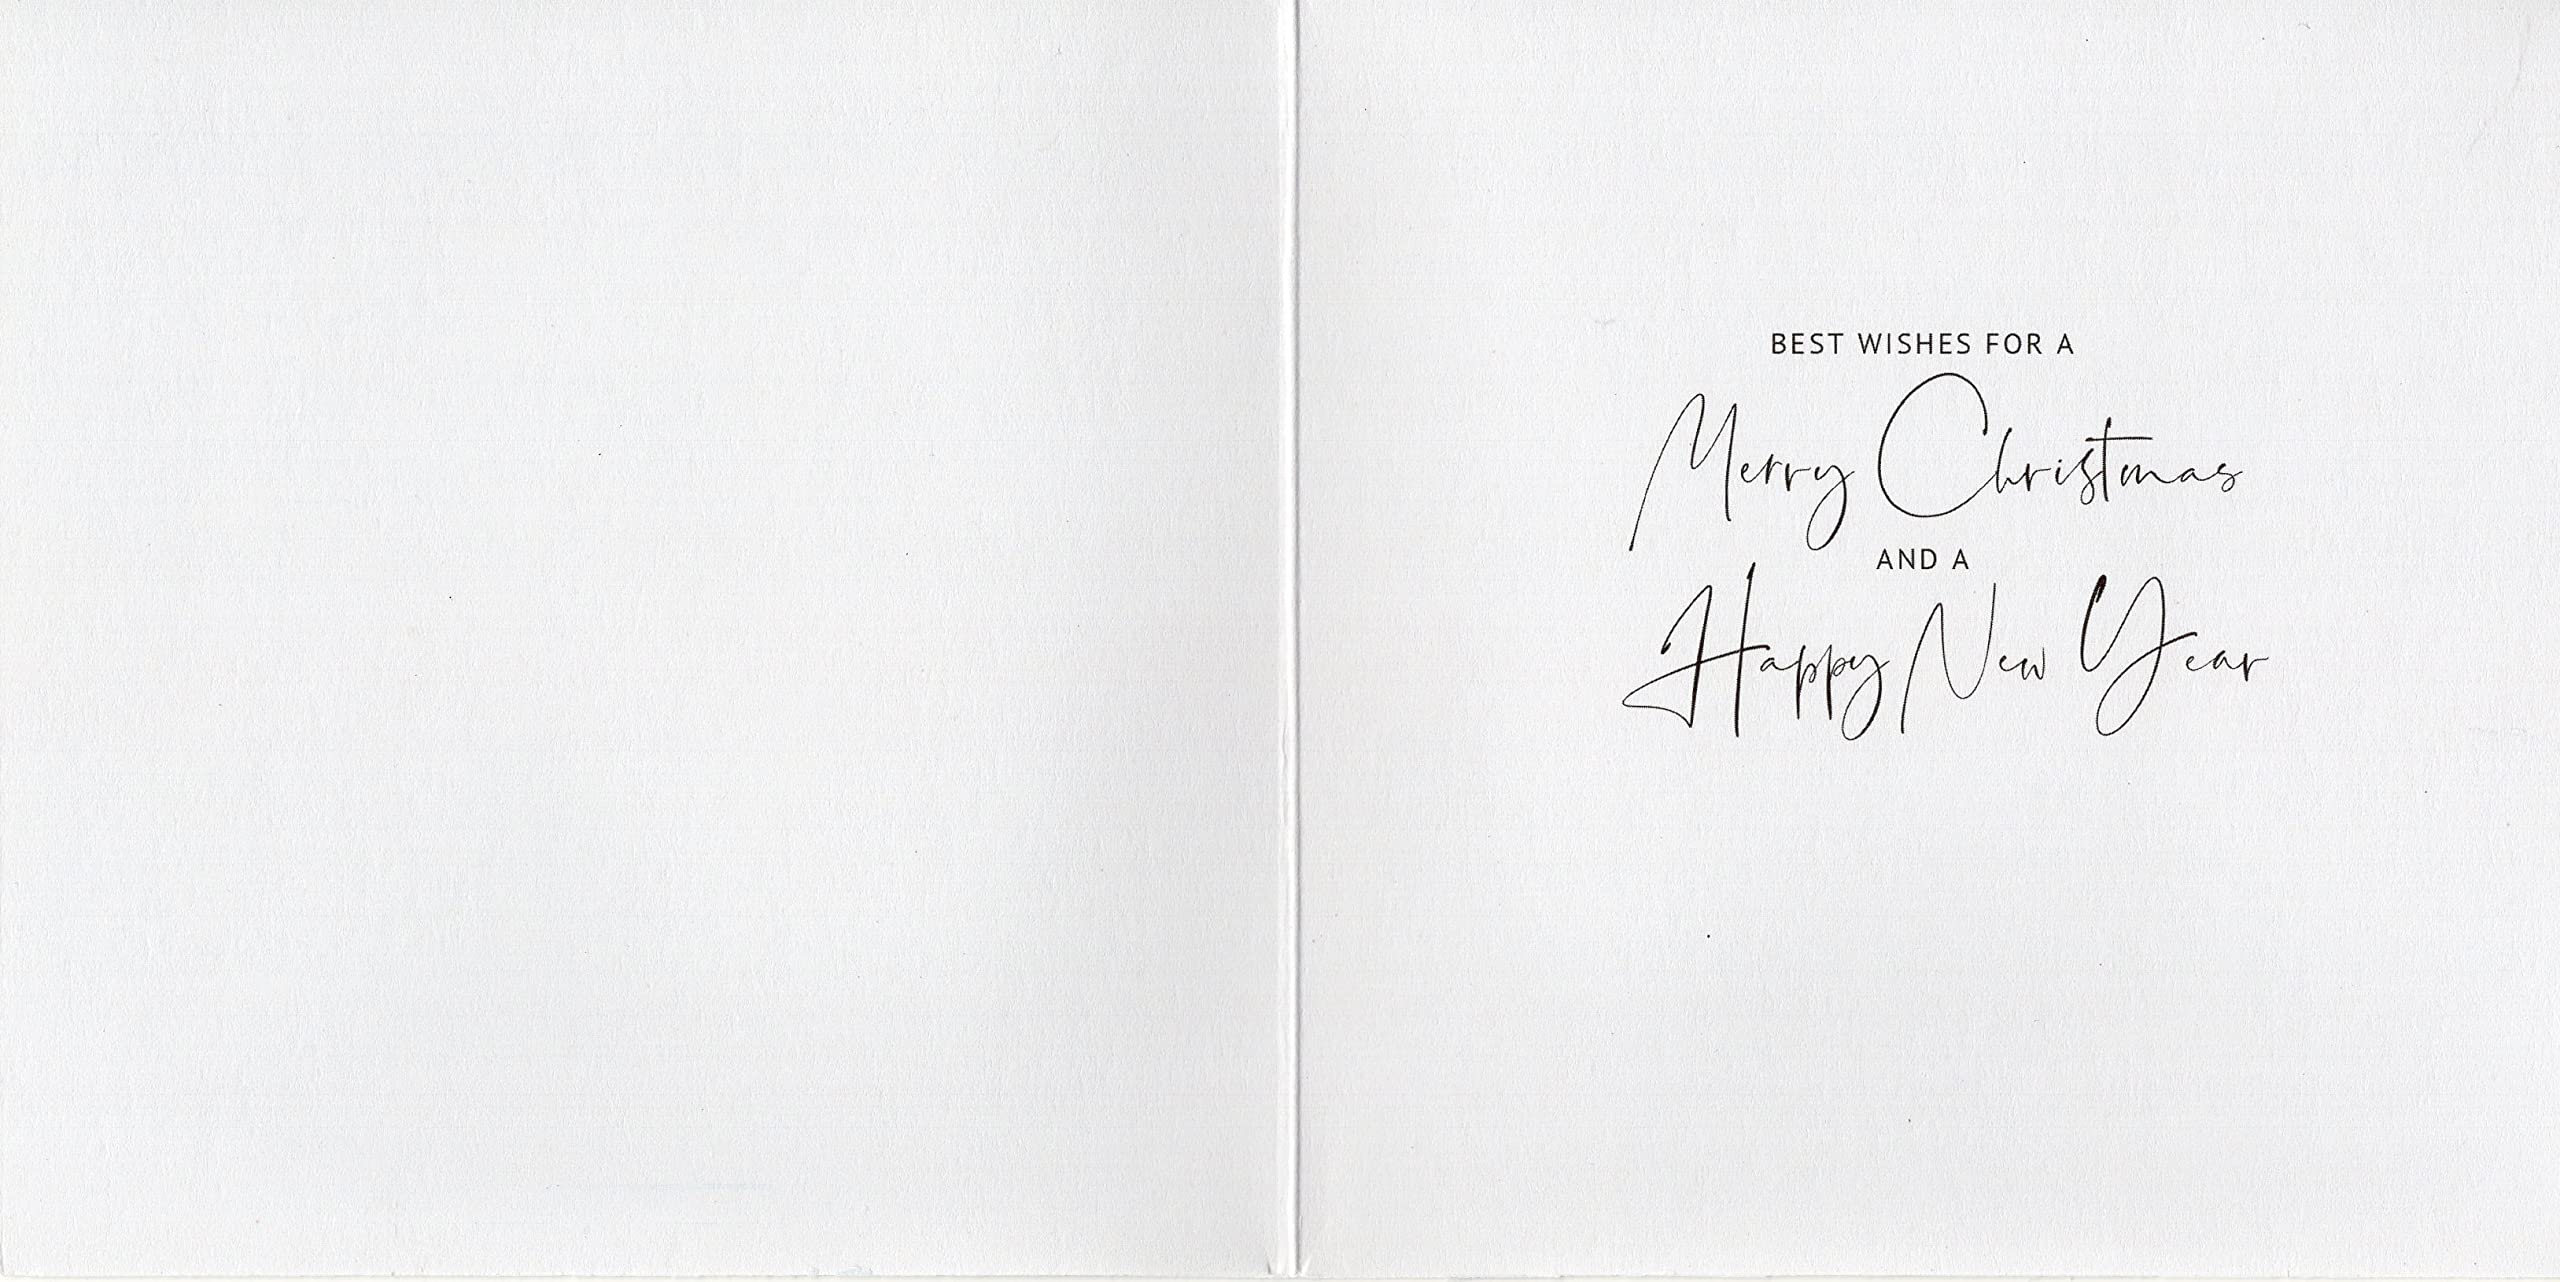 BEST WISHES FOR A
Merry Christmas
AND A
Happy New Year